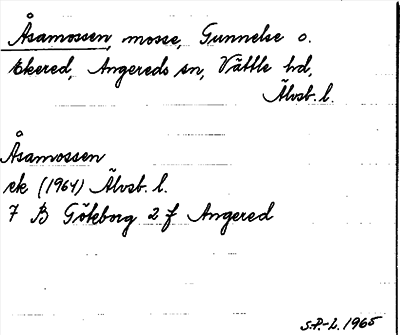 Åsamossen, mosse, Gunnelse o.
Ekered, Angereds sn, Vättle hd,
Älvsb. l.
Åsamossen
ek (1964) Älvsb. l.
7 B Göteborg 2 f Angered
S.P.-L. 1965